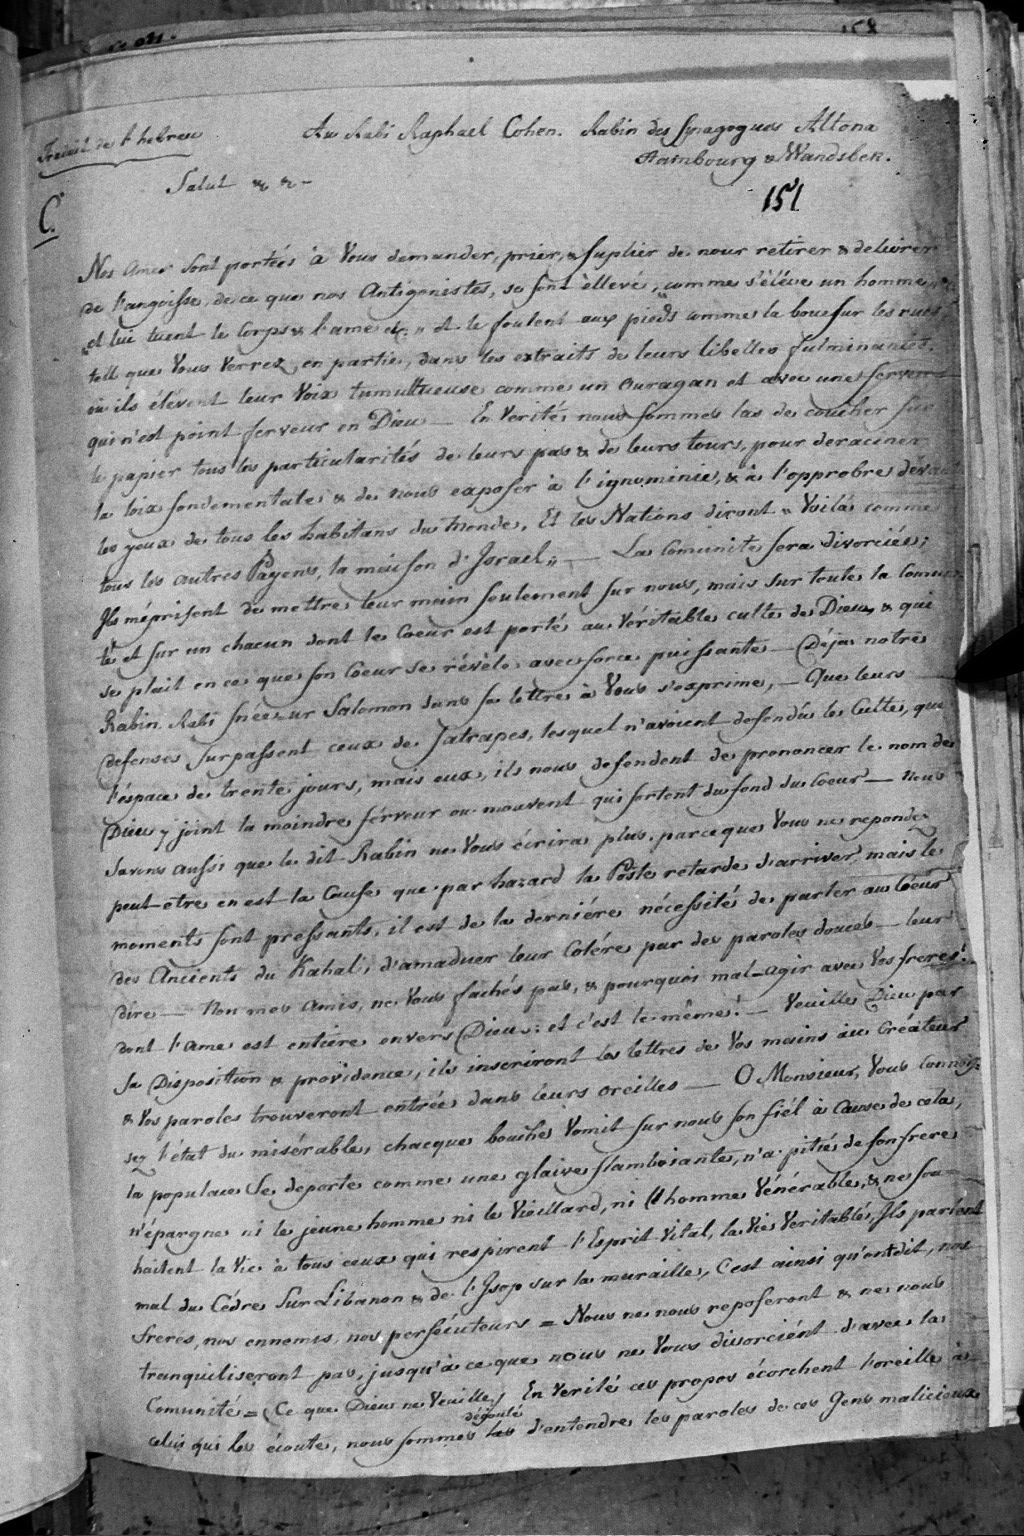 158
Traduit de l'hebreu
Au Rabi Raphael Cohen. Rabin des Synagogues Altona
Hambourg & Wandsbek.
Salut & & -
151
C.
Nos ames sont portées à Vous demander, prier, & suplier de nous retirer & delivrer
de l'angoisse, de ce que nos Antigonistes, se sont èllevé, comme s'élève un homme
„et lui tuent le Corps & l'ame &c„ et le foulent aux pieds comme la boue sur les rues
tell que Vous Verrez, en partie, dans les extraits de leurs libelles fulminantes.
où ils élévent leur Voix tumultueuse comme un ouragan et avec une ferveur
qui n'est point ferveur en Dieu — En Verité nous sommes las de coucher sur
le papier tous les particularités de leurs pas & de leurs tours, pour deraciner
la loix fondementale & de nous exposer à l'ignominie, & à l'opprobre devant
les yeux de tous les habitans du monde. Et les Nations diront „ Voilà comme
tous les autres Payens, la maison d'Israel„ — La Comunité sera divorciée;
Ils méprisent de mettre leur main seulement sur nous, mais sur toute la Comuni-
té et sur un chacun dont le Coeur est porté au Véritable culte de Dieu, & qui
se plait en ce que son Coeur se révèle avec force puissante — Déja notre
Rabin Rabi Snéeur Salomon dans sa lettre à Vous s'exprime, — Que leurs
defenses surpassent ceux de Satrapes, lesquel n'avoient defendûs le Culte, que
l'éspace de trente jours, mais eux, ils nous defendent de prononcer le nom de
Dieu y joint la moindre férveur ou mouvent qui sortent du fond du Coeur — nous
savons aussi que le dit Rabin ne Vous écrira plus, parceque Vous ne repondez
peut-etre en est la Cause que par hazard la Poste retarde d'arriver, mais le
moments sont pressants, il est de la derniére nécessité de parler au Coeur
des Anciens du Kahal, d'amaduer leur Colére par des paroles douces — leur
dire — Non mes Amis, ne Vous fachés pas, & pourquoi mal-agir avec Vos freres!
dont l'ame est entière envers Dieu; et c'est le même! — Veuille Dieu par
sa Disposition & providence, ils inscriront les lettres de Vos mains au Créateur
& Vos paroles trouveront entrée dans leurs oreilles — O Monsieur, Vous connois-
sez l'état du misérable, chacque bouche Vomit sur nous son fiél à Cause de cela,
la populace se deporte comme une glaive flamboiante, n'a pitié de son frere
n'épargne ni le jeune homme ni le Vieillard, ni l'homme Vénérable, & ne sou-
haitent la Vie à tous ceux qui respirent l'Esprit Vital, la Vie Veritable, Ils parlent
mal du Cédre sur Libanon & de l'Isop sur la muraille, C'est ainsi qu'ont dit, nos
freres, nos ennemis, nos persécuteurs = Nous ne nous reposeront & ne nous
tranquiliseront pas, jusqu'à ce que nous ne Vous divorcient d'avec la
Comunité = (Ce que Dieu ne Veuille) En Verité ces propos écorchent l'oreille à
dégouté
celui qui les écoute, nous sommes las d'entendre les paroles de ces Gens malicieux